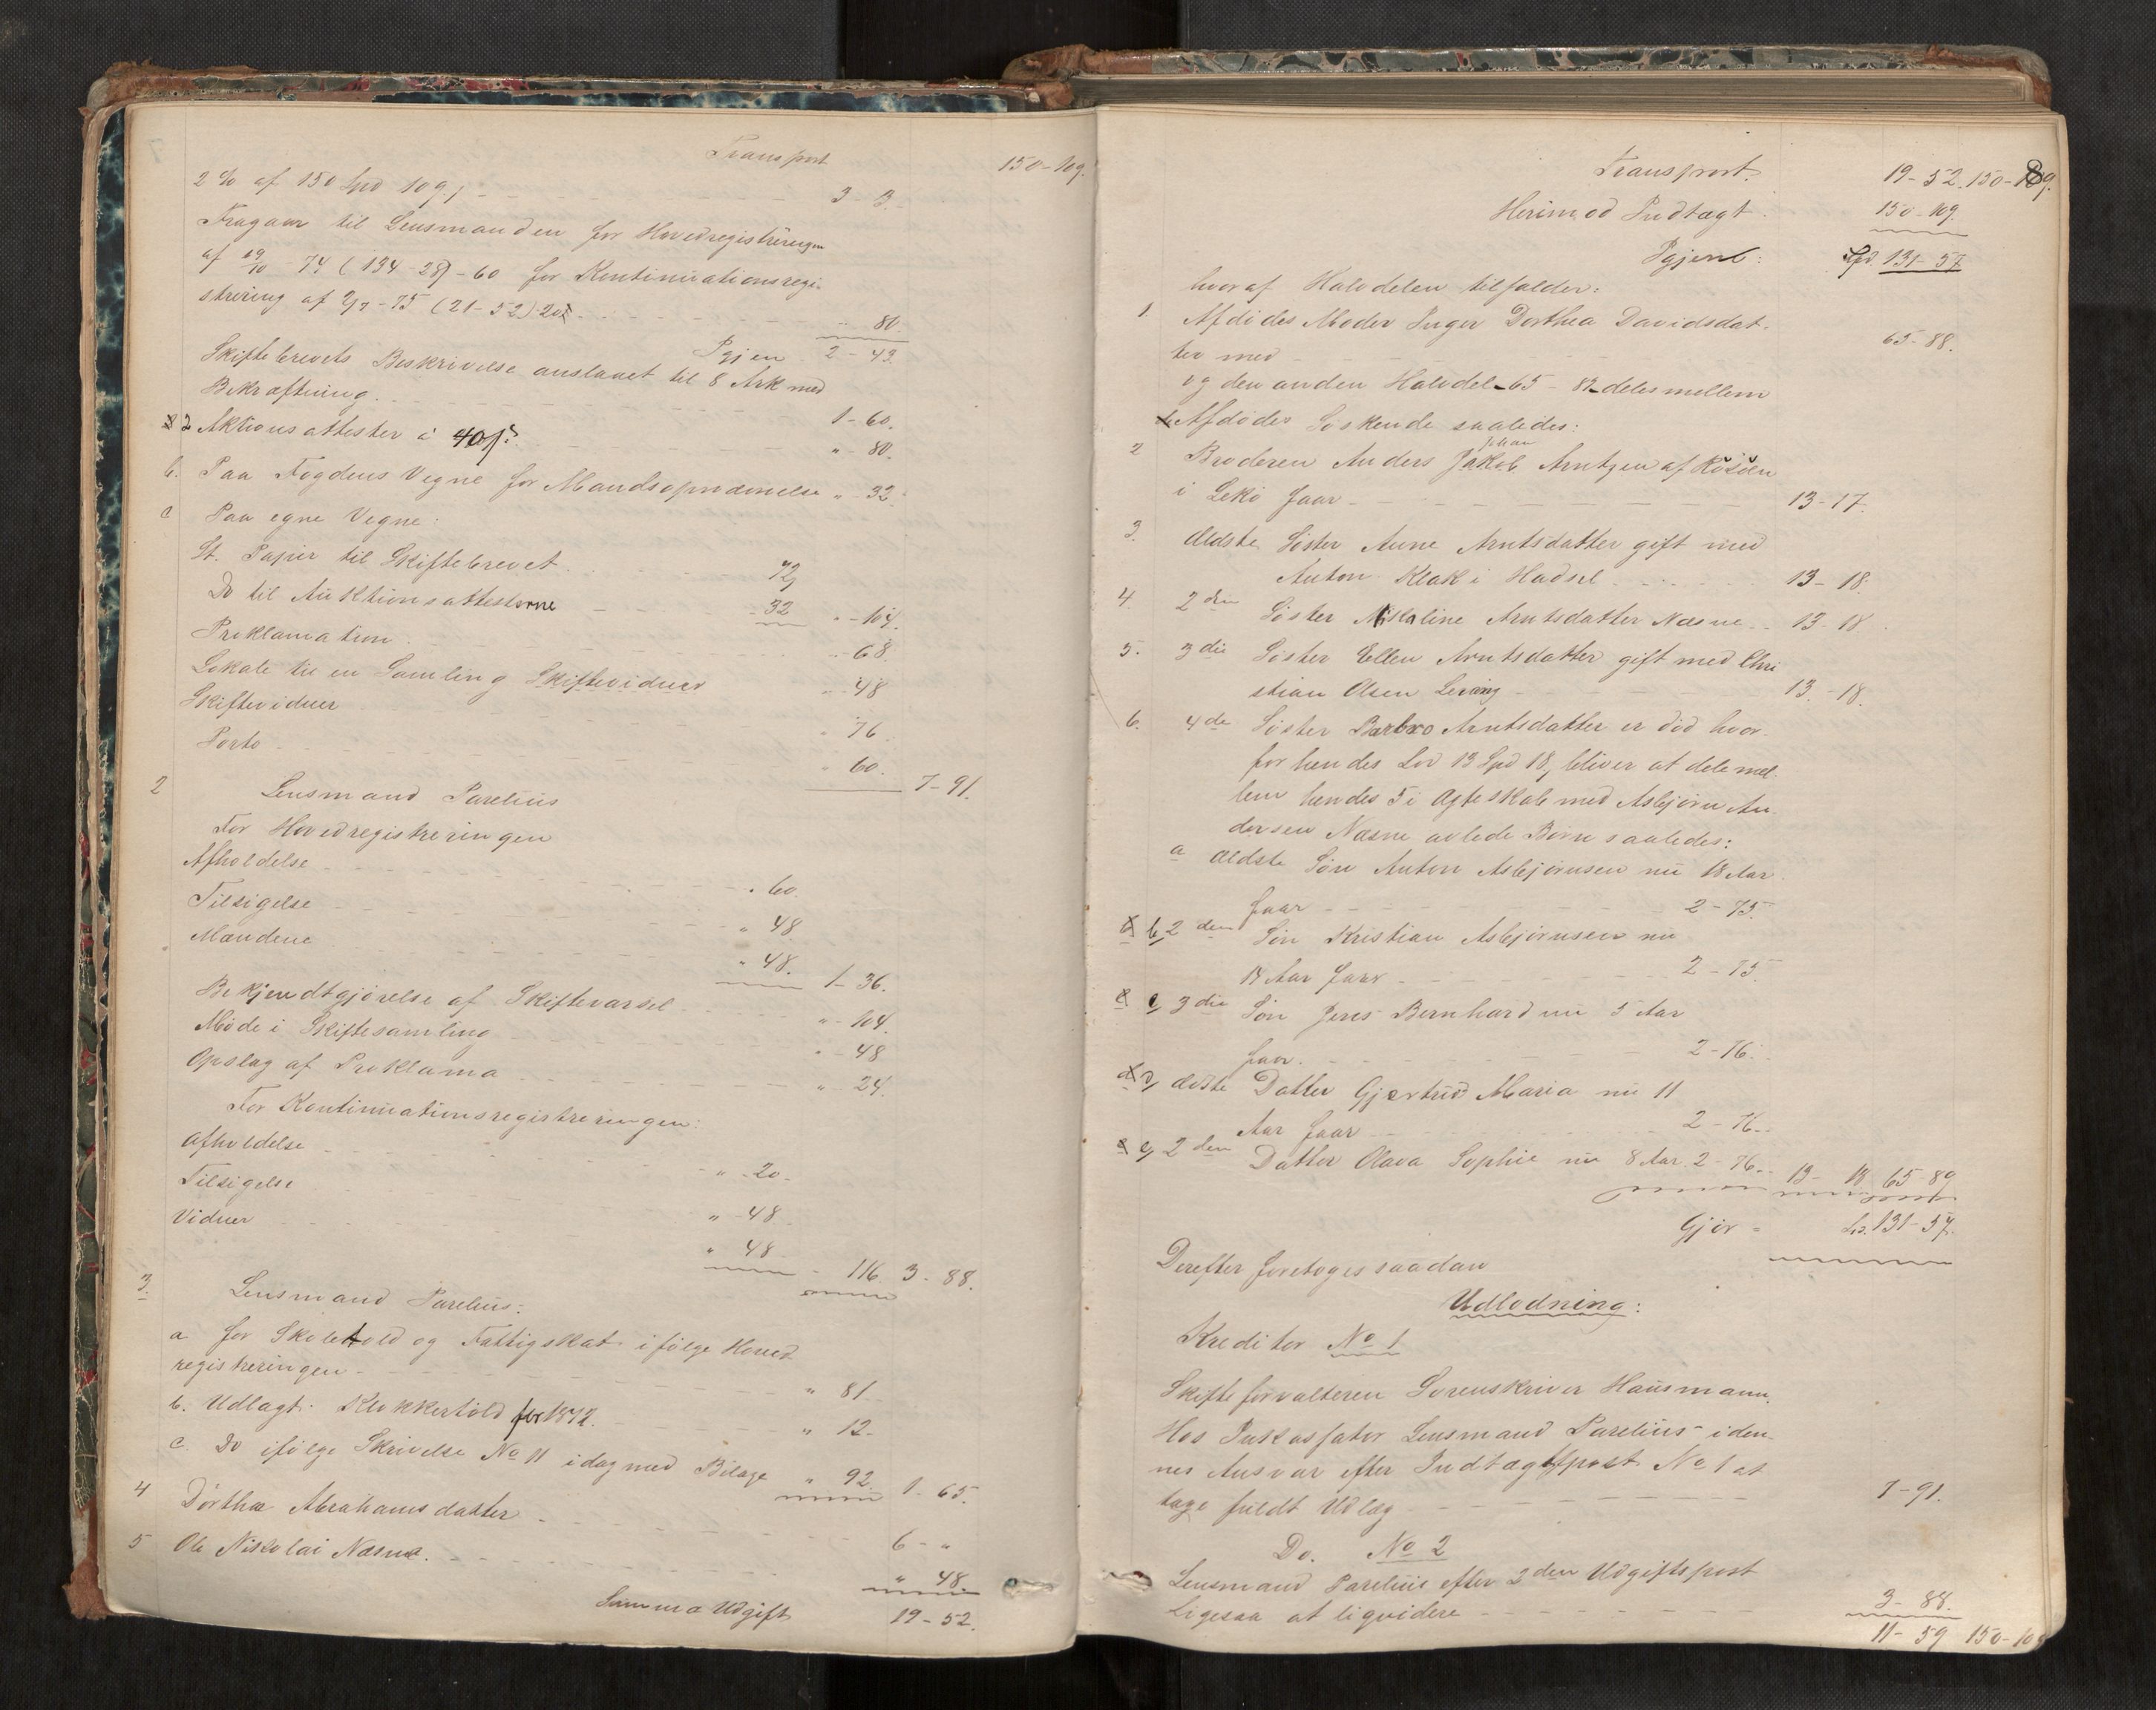 Transport 150-109.
2 % af 150 Spd 109 ſ - 3-3.
Fragaar til Lensmanden for Hovedregistreringen
af 29/10 - 74 (134-28) - 60 for Kontinuationsregi-
strering af 2/7 - 75 (21-52) 20 ſ. " 80.
Igjen 2-43.
Skiftebrevets Beskrivelse anslaaet til 8 Ark med
Bekræftning. 1-60.
2 Aktionsattester á 40 ſ. "-80.
b. Paa Fogdens Vegne for Mandsopnævnelse "-32.
c Paa egne Vegne:
St. Papir til Skiftebrevet 72
Do til Auktionsattesterne 32 "-104.
Proklamation "-68
Lokale til en Samling Skiftevidner "-48
Skiftevidner "76.
Porto "60. 7-91.
2 Lensmand Parelius
For Hovedregistreringen
Afholdelse " 60.
Tilsigelse " 48
Mændene " 48. 1-36.
Bekjendtgjørelse af Skiftevarsel "-104.
Møde i Skiftesamling "-48
Opslag af Proklama "-24.
For Kontinuationsregistreringen:
Afholdelse "-20.
Tilsigelse "-48.
Vidner " 48 - 116. 3-88.
3. Lensmand Parelius:
a for Skoletold og Fattigskat ifølge Hoved
registreringen " 81.
b. Udlagt Klokkertold for 1872. " 12.
c. Do ifølge Skrivelse No 11 idag med Bilage " 92 1-65.
4 Dorthea Abrahamsdatter 6-"
5 Ole Nikolai Næsne. " 48.
Summa Udgift 19-52.
8
Transport. 19-52. 150-109.
Herimod Indtægt 150-109.
Igjen: Spd 131-57
hvoraf Halvdelen tilfalder:
1. Afdødes Moder Inger Dorthea Davidsdat-
ter med 65-88.
og den anden Halvdel 65-89 deles mellem
Afdødes Søskende saaledes:
2 Broderen Anders Johan Jakob Arntzen af Rosøen
i Lekø faar 13-17.
3. Ældste Søster Anne Arntsdatter gift med
Anton Klak i Hadsel 13-18.
4. 2den Søster Nikoline Arntsdatter Næsne 13-18
5. 3die Søster Ellen Arntsdatter gift med Chri
stian Olsen Leving 13-18.
6. 4de Søster Barbro Arntsdatter er død hvor-
for hendes Lod 13 Spd 18 ſ bliver at dele mel-
lem hendes 5 i Ægteskab med Asbjørn An-
dersen Næsne avlede Børn saaledes:
a Ældste Søn Anton Asbjørnsen nu 18 Aar
faar 2-75.
b, 2den Søn Kristian Asbjørnsen nu
14 Aar faar 2-75.
c, 3die Søn Jens Bernhard nu 5 Aar
faar. 2-76.
d, ældste Datter Gjertrud Maria nu 11
Aar faar 2-76.
e, 2den Datter Olava Sophie nu 8 Aar 2-76. 13-18 65-89
Gjør = Sp. 131-57.
Derefter foretoges saadan
Udlodning:
Kreditor No 1
Skifteforvalteren Sorenskriver Hausmann.
Hos Inkassator Lensmand Parelius i den-
nes Ansvar efter Indtægtspost No 1 at
tage fuldt Udlæg 7-91.
Do. No 2
Lensmand Parelius efter 2den Udgiftspost
Ligesaa at liqvidere 3-88.
11-59 150-109